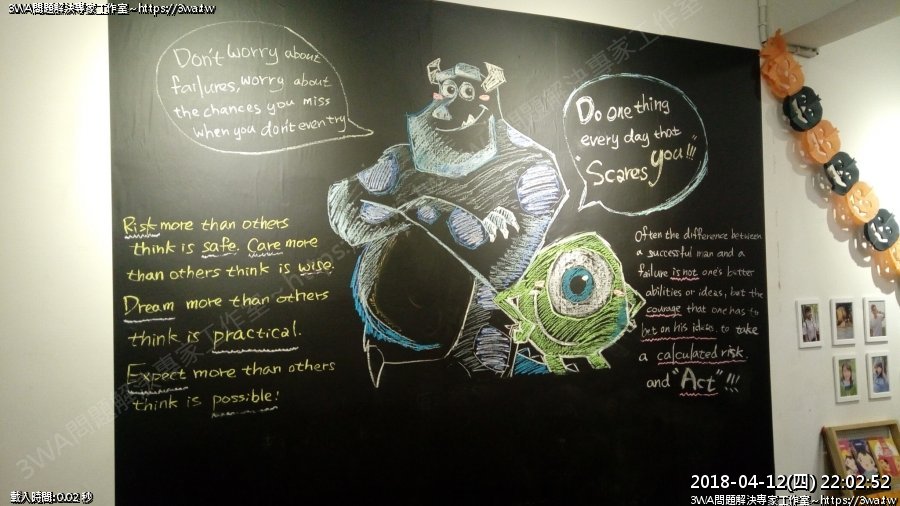 3WA問題解決專家工作室~https://3wa.tw
Don't worry about
failures, worry about
the chances you miss
when you don't even try
Do one thing
every day that
"Scares you"!!!
Risk more than others
think is safe. Care more
than others think is wise.
Dream more than others
think is practical.
Expect more than others
think is possible!
Often the difference between
a successful man and a
failure is not one's better
abilities or ideas, but the
courage that one has to
bet on his ideas, to take
a calculated risk.
and "Act" !!!
3WA問題解決專家工作室~https://3wa.tw
載入時間:0.02 秒
2018-04-12(四) 22:02:52
3WA問題解決專家工作室~https://3wa.tw